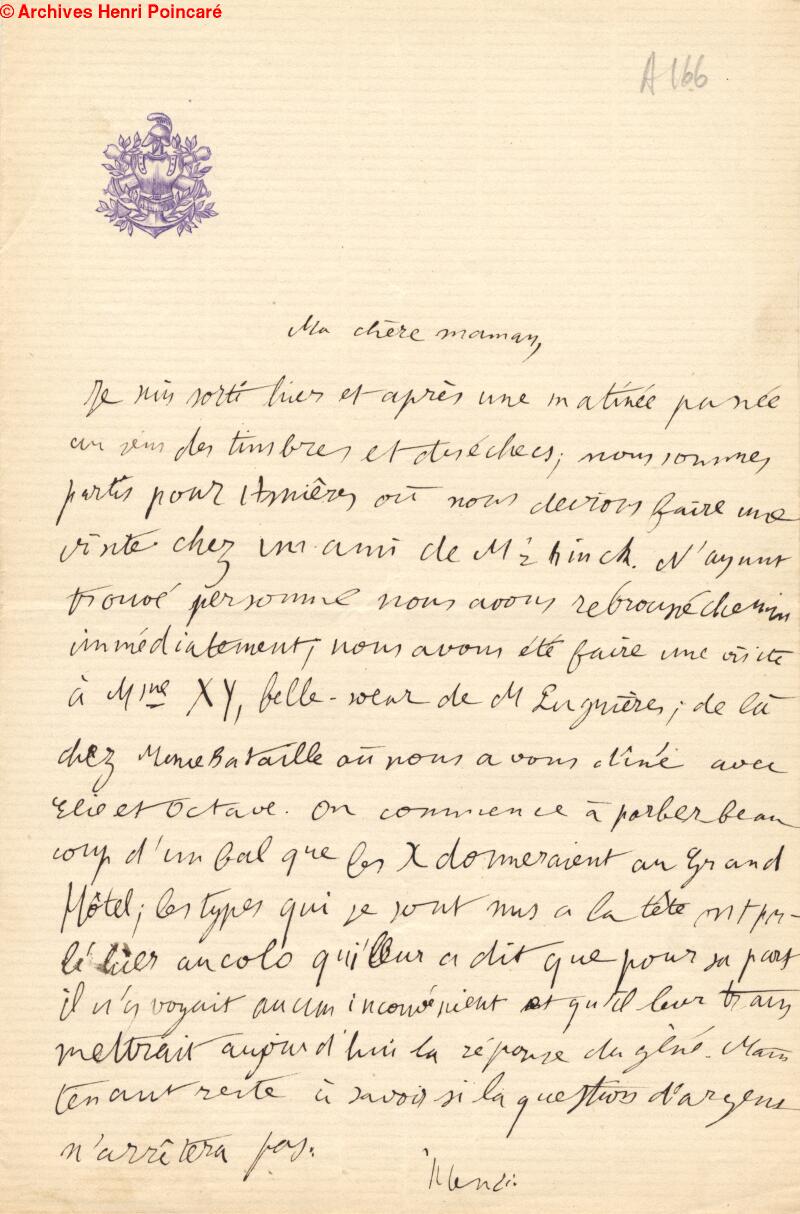 © Archives Henri Poincaré
A 166
Ma chère maman,
Je suis sorti hier et après une matinée passée
au jeu des timbres et des échecs, nous sommes
partis pour Asnières où nous devions faire une
visite chez un ami de Mr Hinck. N'ayant
trouvé personne nous avons rebroussé chemin
immédiatement; nous avons été faire une visite
à Mme XY, belle-sœur de M Lugnières; de là
chez Mme Bataille où nous avons dîné avec
Elie et Octave. On commence à parler beau
coup d'un bal que les X donneraient au Grand
Hôtel; les types qui se sont mis à la tête ont par-
lé hier au colo qui leur a dit que pour sa part
il n'y voyait aucun inconvénient et qu'il leur trans
mettrait aujourd'hui la réponse du géné. Main
tenant reste à savoir si la question d'argent
n'arrêtera pas.
Henri